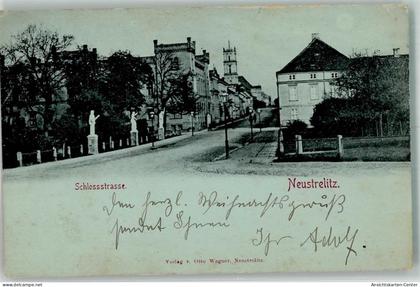 Schlossstrasse.
Neustrelitz.
Den herzl. Weihnachtsgruß
sendet Ihnen
Ihr Adolf.
Verlag v. Otto Wagner, Neustrelitz.
www.ansichtskarten-center.de
Ansichtskarten-Center